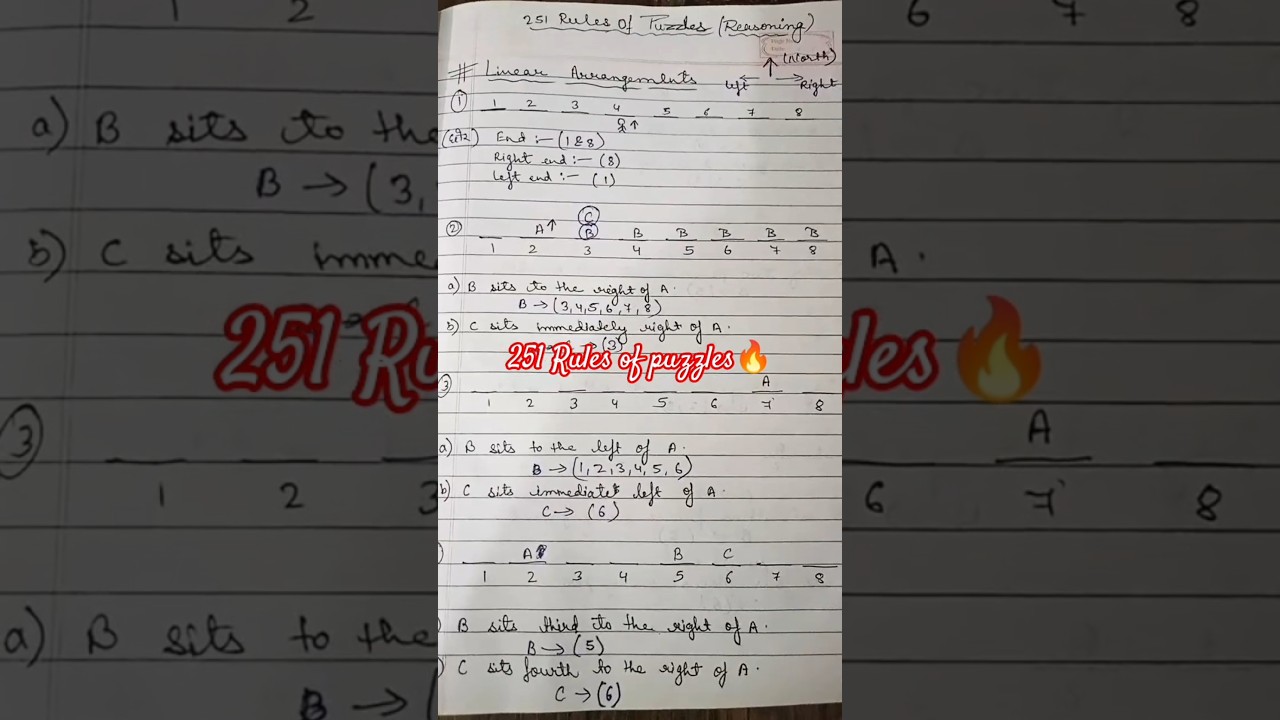 251 Rules Of Puzzles (Reasoning)
↑ (North)
# Linear Arrangements Left ← → Right
① 1 2 3 4 5 6 7 8
↑
End :- (1 & 8)
Right end :- (8)
Left end :- (1)
C
A↑ B B B B B B
② 1 2 3 4 5 6 7 8
a) B sits to the right of A.
B → (3,4,5,6,7,8)
b) C sits immediately right of A.
(3)
251 Rules of puzzles🔥
A
③ 1 2 3 4 5 6 7 8
a) B sits to the left of A.
B → (1, 2, 3, 4, 5, 6)
b) C sits immediate left of A.
C → (6)
A B C
) 1 2 3 4 5 6 7 8
) B sits third to the right of A.
B → (5)
) C sits fourth to the right of A.
C → (6)
6 7 8
a) B sits to the
B → (3,
b) C sits imme
A.
251 Ru
les🔥
③ 1 2 3
A
6 7 8
a) B sits to the
B → (